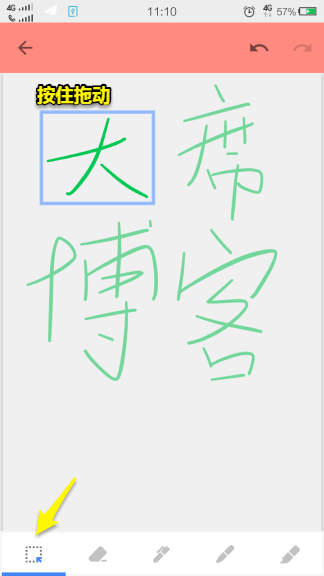 4G 11:10 4G 57%
4G
按住拖动
大席
博客